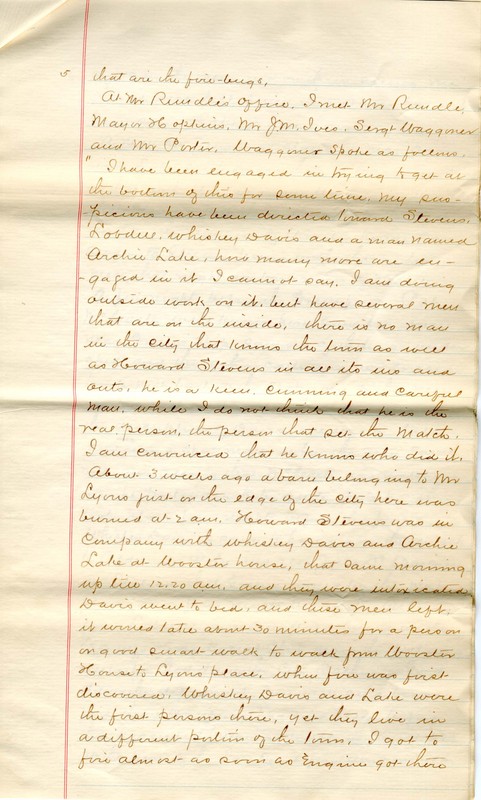 5 that are the fire-bugs.
At Mr Rundle's Office. I met Mr Rundle,
Mayor Hopkins, Mr J.M. Ives. Sergt Waggoner
and Mr Porter. Waggoner Spoke as follows.
" I have been engaged in trying to get at
the bottom of this for some time. My sus-
picions have been directed toward Stevens,
Lobdell, whiskey Davis and a man named
Archie Lake, how many more are en-
gaged in it I cannot say. I am doing
outside work on it, but have several men
that are on the inside, there is no man
in the city that knows the town as well
as Howard Stevens in all its ins and
outs, he is a keen, cunning and careful
man, while I do not think that he is the
real person, the person that set the Match.
I am convinced that he knows who did it.
About 3 weeks ago a barn belonging to Mr
Lyons just on the edge of the city here was
burned at 2 am. Howard Stevens was in
Company with whiskey Davis and Archie
Lake at Wooster house, that same morning
up till 12.20 am. and they were intoxicated
Davis went to bed, and these men left.
it would take about 30 minutes for a person
on good smart walk to walk from Wooster
House to Lyons place, when fire was first
discovered, Whiskey Davis and Lake were
the first persons there, yet they live in
a different portion of the town, I got to
fire almost as soon as Engine got there